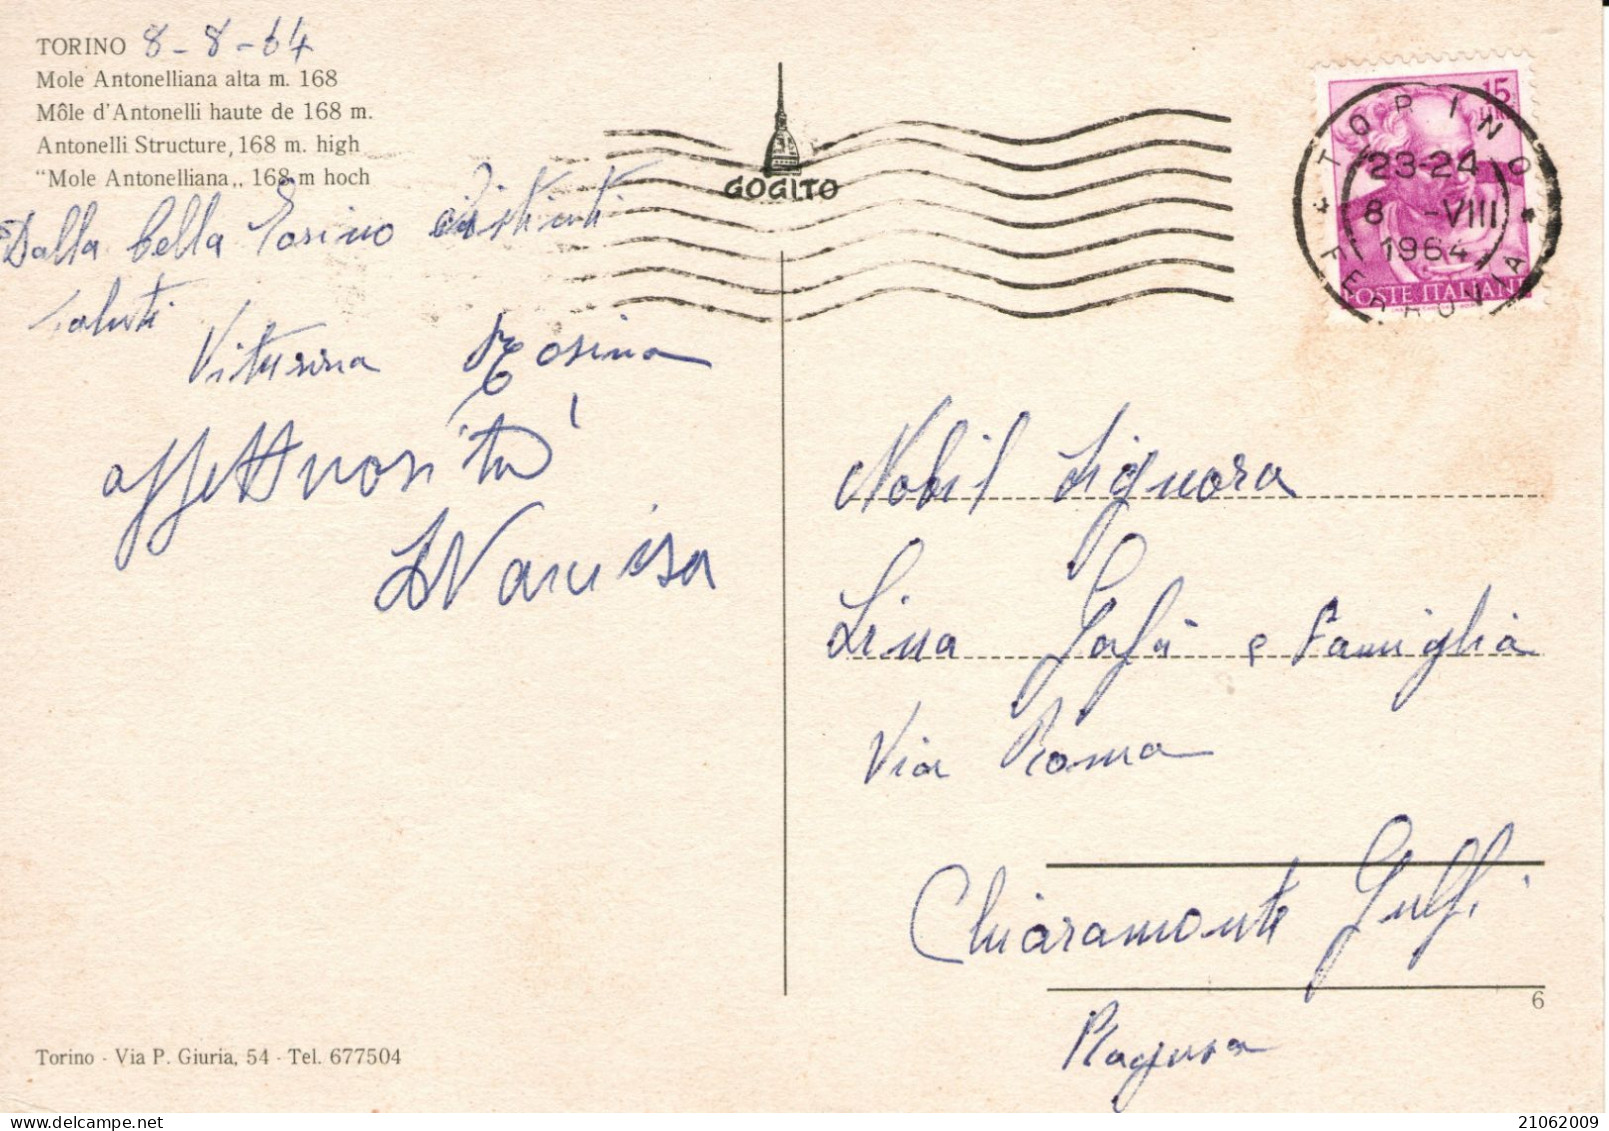 TORINO 8-8-64
Mole Antonelliana alta m. 168
Môle d'Antonelli haute de 168 m.
Antonelli Structure, 168 m. high
"Mole Antonelliana„ 168 m hoch
Dalla bella Torino distinti
saluti
Vitusina Rosina
affettuosità
Narcisa
GOGITO
15
LIRE
POSTE ITALIANE
TORINO
23-24
8 -VIII
1964
FERROVIA
Nobil Signora
Lina Gafà e Famiglia
Via Roma
Chiaramonte Gulfi
6
Ragusa
Torino - Via P. Giuria, 54 - Tel. 677504
21062009